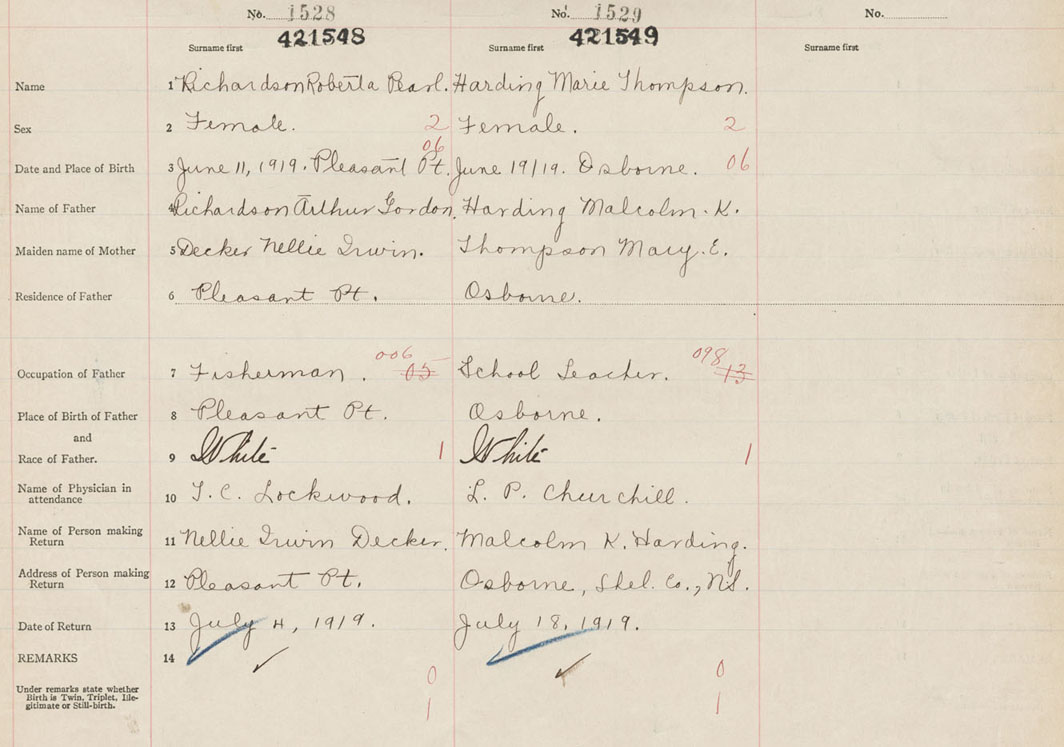 No. 1528 No. 1529 No.
Surname first 421548 Surname first 421549 Surname first
Name 1 Richardson Roberta Pearl. Harding Marie Thompson.
Sex 2 Female. 2 Female. 2
06
Date and Place of Birth 3 June 11, 1919. Pleasant Pt. June 19/19. Osborne. 06
Name of Father 4 Richardson Arthur Gordon. Harding Malcolm. K.
Maiden name of Mother 5 Decker Nellie Irwin. Thompson Mary. E.
Residence of Father 6 Pleasant Pt. Osborne.
006 098
Occupation of Father 7 Fisherman. 05 School Teacher. 13
Place of Birth of Father 8 Pleasant Pt. Osborne.
and
Race of Father. 9 White 1 White 1
Name of Physician in
attendance 10 T. C. Lockwood. L. P. Churchill.
Name of Person making
Return 11 Nellie Irwin Decker. Malcolm K. Harding.
Address of Person making
Return 12 Pleasant Pt. Osborne, Shel. Co., N.S.
Date of Return 13 July 4, 1919. July 18, 1919.
REMARKS 14
0 0
Under remarks state whether
Birth is Twin, Triplet, Ille-
gitimate or Still-birth. 1 1